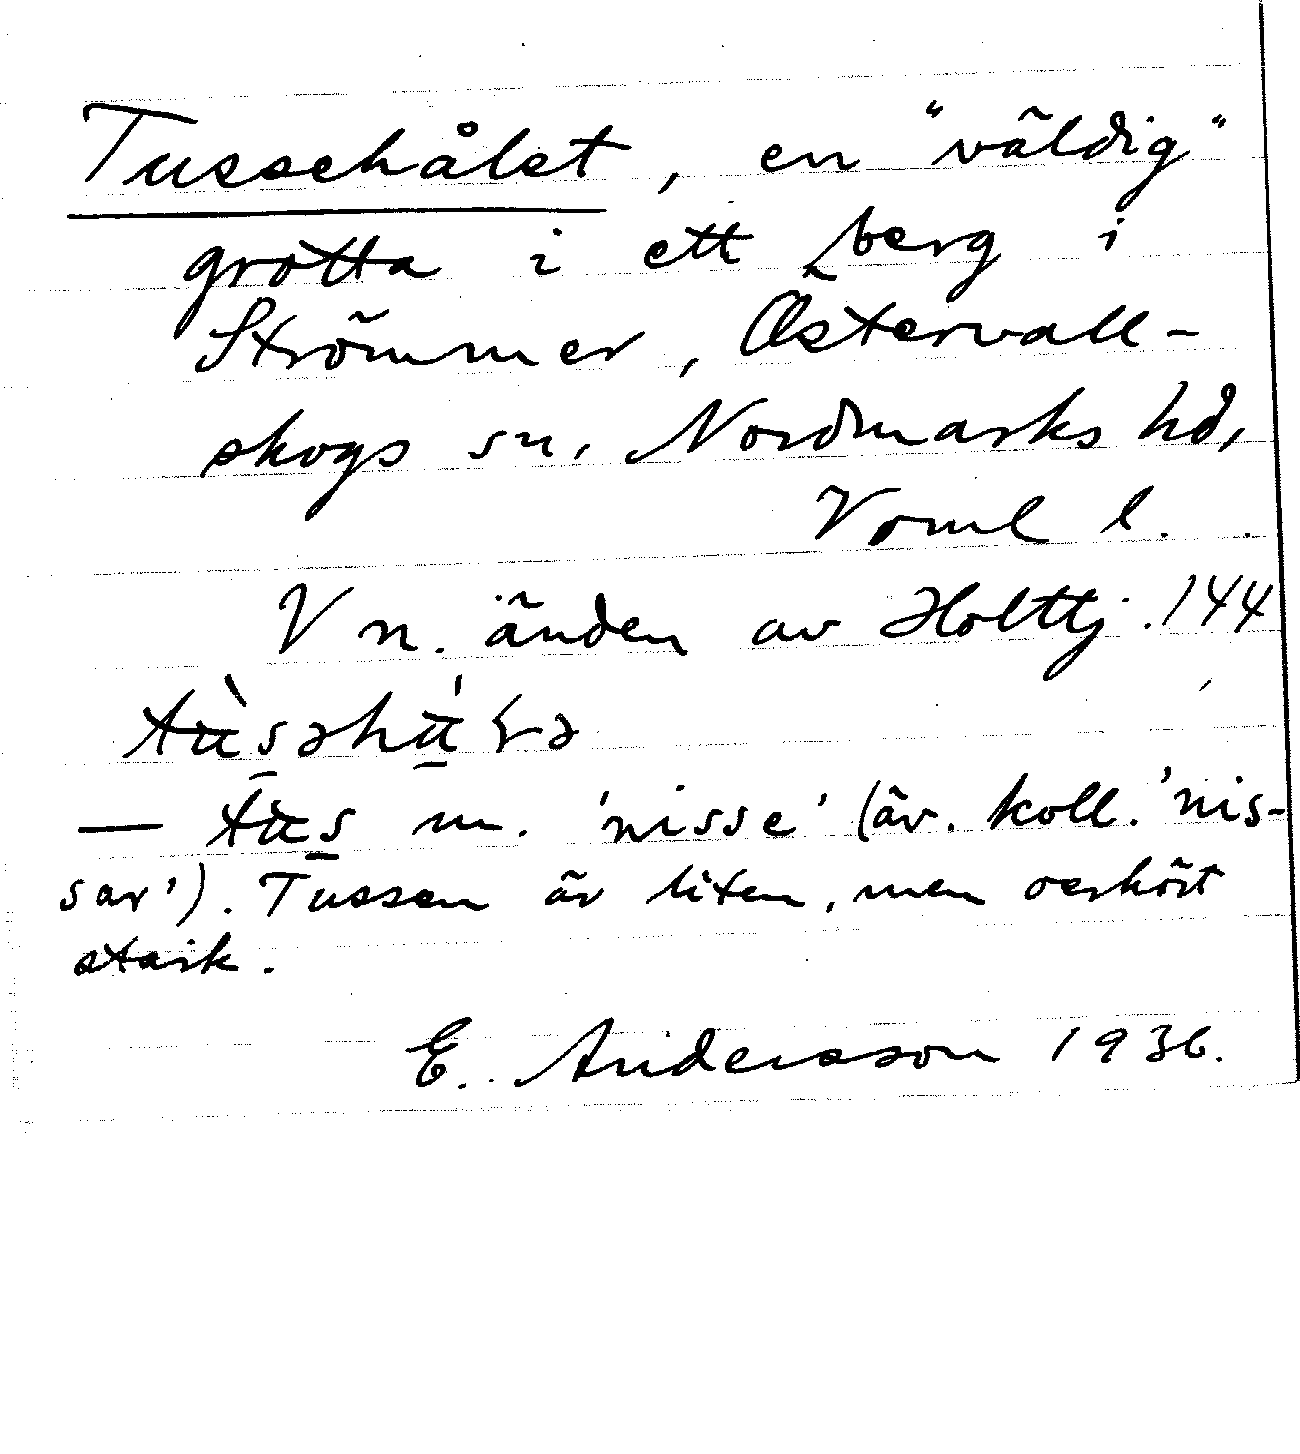 Tussehålet, en "väldig"
grotta i ett berg i
Strömmer, Östervall-
skogs sn. Nordmarks hd,
Vrml l.
V n. änden av Holttj. 144
— m. 'nisse' (äv. koll. 'nis-
sar'). Tussen är liten, men oerhört
stark.
E. Andersson 1936.